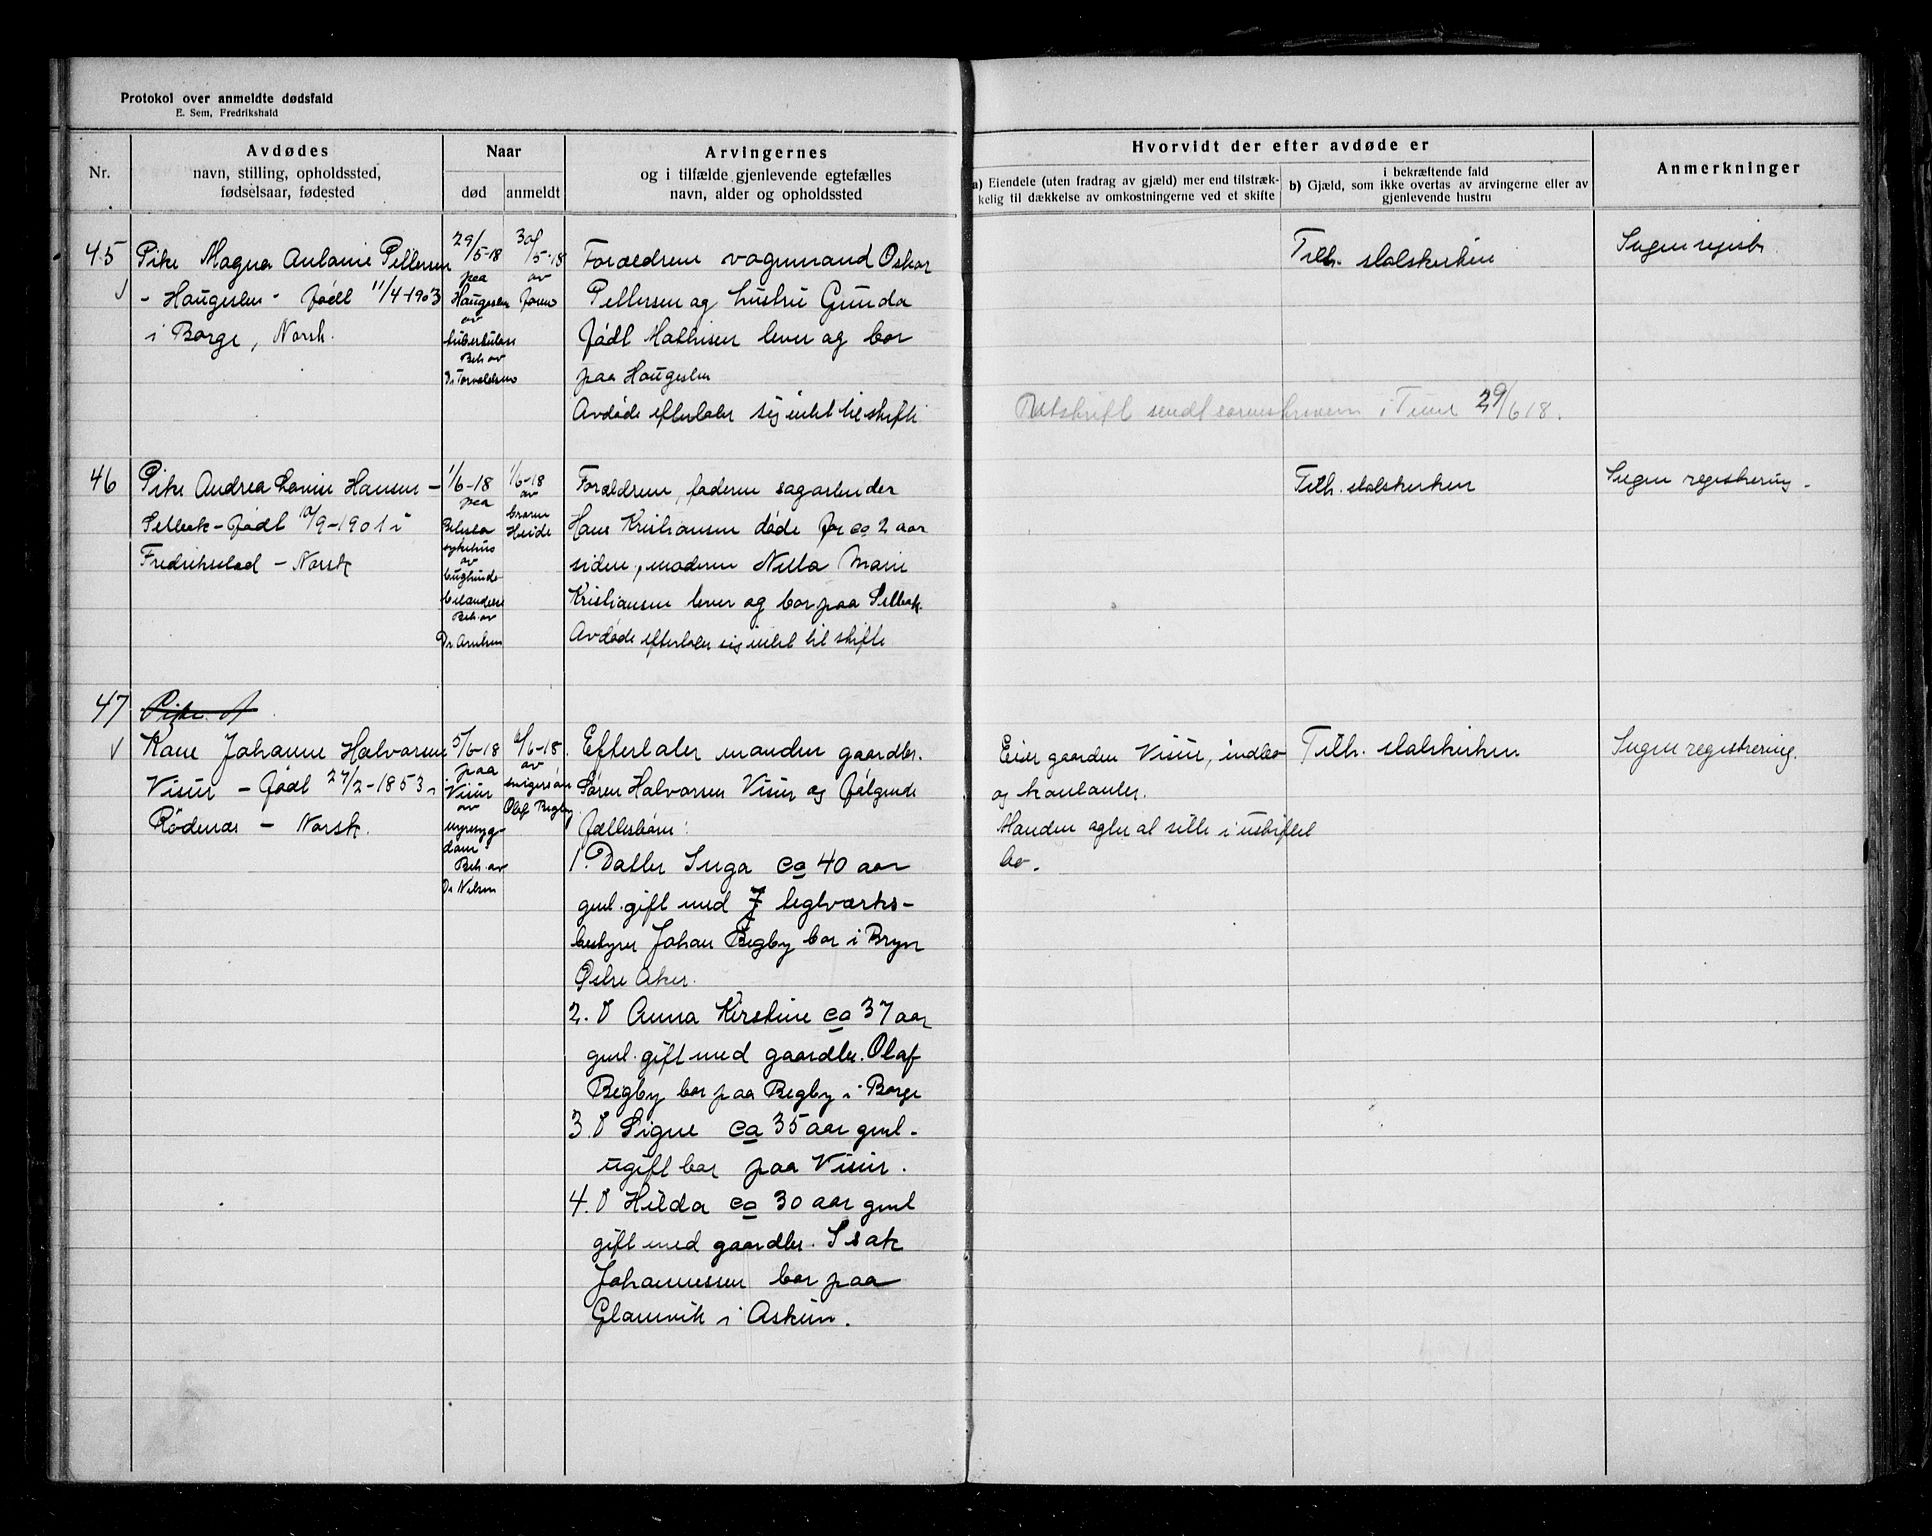 Protokol over anmeldte dødsfald
E. Sem, Fredrikshald
Nr.
Avdødes
navn, stilling, opholdssted,
fødselsaar, fødested
Naar
død
anmeldt
Arvingernes
og i tilfælde gjenlevende egtefælles
navn, alder og opholdssted
Hvorvidt der efter avdøde er
a) Eiendele (uten fradrag av gjæld) mer end tilstræk-
kelig til dækkelse av omkostningerne ved et skifte
i bekræftende fald
b) Gjæld, som ikke overtas av arvingerne eller av
gjenlevende hustru
Anmerkninger
45
Pike Magna Antonie Pettersen
- Haugeslen - født 11/4-1903
i Borge, Norsk.
29/5-18
paa
Haugeslen
av
tuberkulose
Beh. av
Dr Torvaldsen
30/5-18
av
faren
Forældrene vognmand Oskar
Pettersen og hustru Gunda
født Mathisen lever og bor
paa Haugeslen
Avdøde efterlater sig intet til skifte
Tilh. statskirken
Ingen registr.
Utskrift sendt sorenskriveren i Tune 29/6 18.
46
Pike Andrea Lovise Hansen -
Selbak - født 10/9-1901 i
Fredrikstad - Norsk
1/6-18
paa
sykehus
av
Beh. av
Dr Arntsen
1/6-18
av
broren
Forældrene, faderen sagarbeider
Hans Kristiansen døde for ca 2 aar
siden, moderen Nilla Marie
Kristiansen lever og bor paa Selbak.
Avdøde efterlater sig intet til skifte
Tilh. statskirken
Ingen registrering -
47
Pike A
Kone Johanne Halvorsen
Visur - født 27/2-1853 i
Rødenæs - Norsk.
5/6-18
paa
Visur
av
nyresyg-
dom
Beh. av
Dr Nilsen
6/6-18.
av
svigersøn
Olaf Begby
Efterlater manden gaardbr.
Søren Halvorsen Visur og følgende
fællesbørn:
1. Datter Inga ca 40 aar
gml. gift med teglværks-
bestyrer Johan Begby bor i Bryn
Østre Aker.
2. D Anna Kirstine ca 37 aar
gml. gift med gaardbr. Olaf
Begby bor paa Begby i Borge
3. D Signe ca 35 aar gml.
ugift bor paa Visur.
4. D Hilda ca 30 aar gml
gift med gaardbr. Isak
Johannessen bor paa
Glamvik i Askim.
Eier gaarden Visur, indbo
og kontanter.
Manden agter at sitte i uskiftet
bo.
Tilh. statskirken
Ingen registrering.